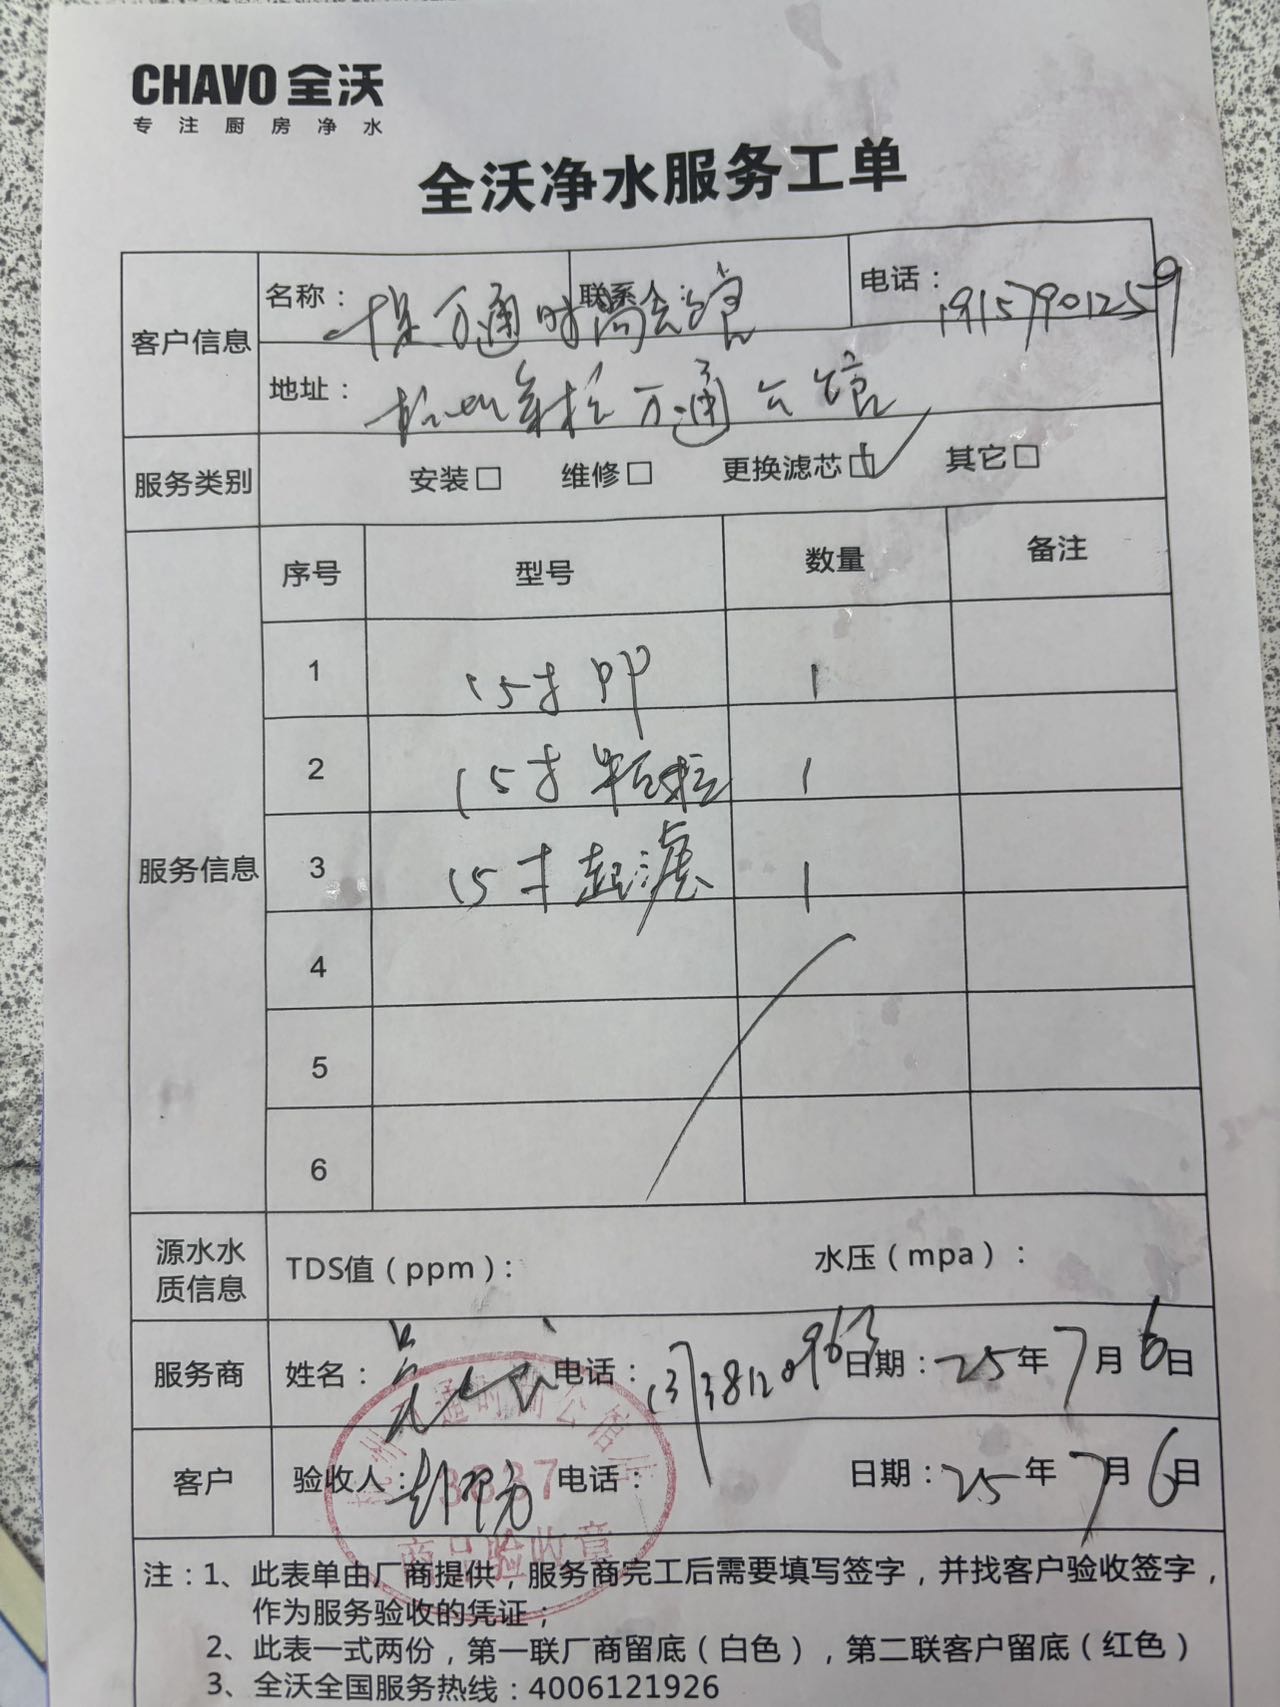 CHAVO 全沃
专注厨房净水
全沃净水服务工单
客户信息
名称： 万通时尚公馆 联系人 电话：19157901259
地址： 万通公馆
服务类别 安装□ 维修□ 更换滤芯□✓ 其它□
服务信息
序号 型号 数量 备注
1 15寸PP 1
2 15寸颗粒 1
3 15寸超滤 1
4
5
6
源水水质信息 TDS值（ppm）： 水压（mpa）：
服务商 姓名： 电话：13738120963 日期：25年7月6日
客户 验收人： 电话： 日期：25年7月6日
杭州万通时尚公馆店
3337
商品验收章
注：1、此表单由厂商提供，服务商完工后需要填写签字，并找客户验收签字，
作为服务验收的凭证；
2、此表一式两份，第一联厂商留底（白色），第二联客户留底（红色）
3、全沃全国服务热线：4006121926